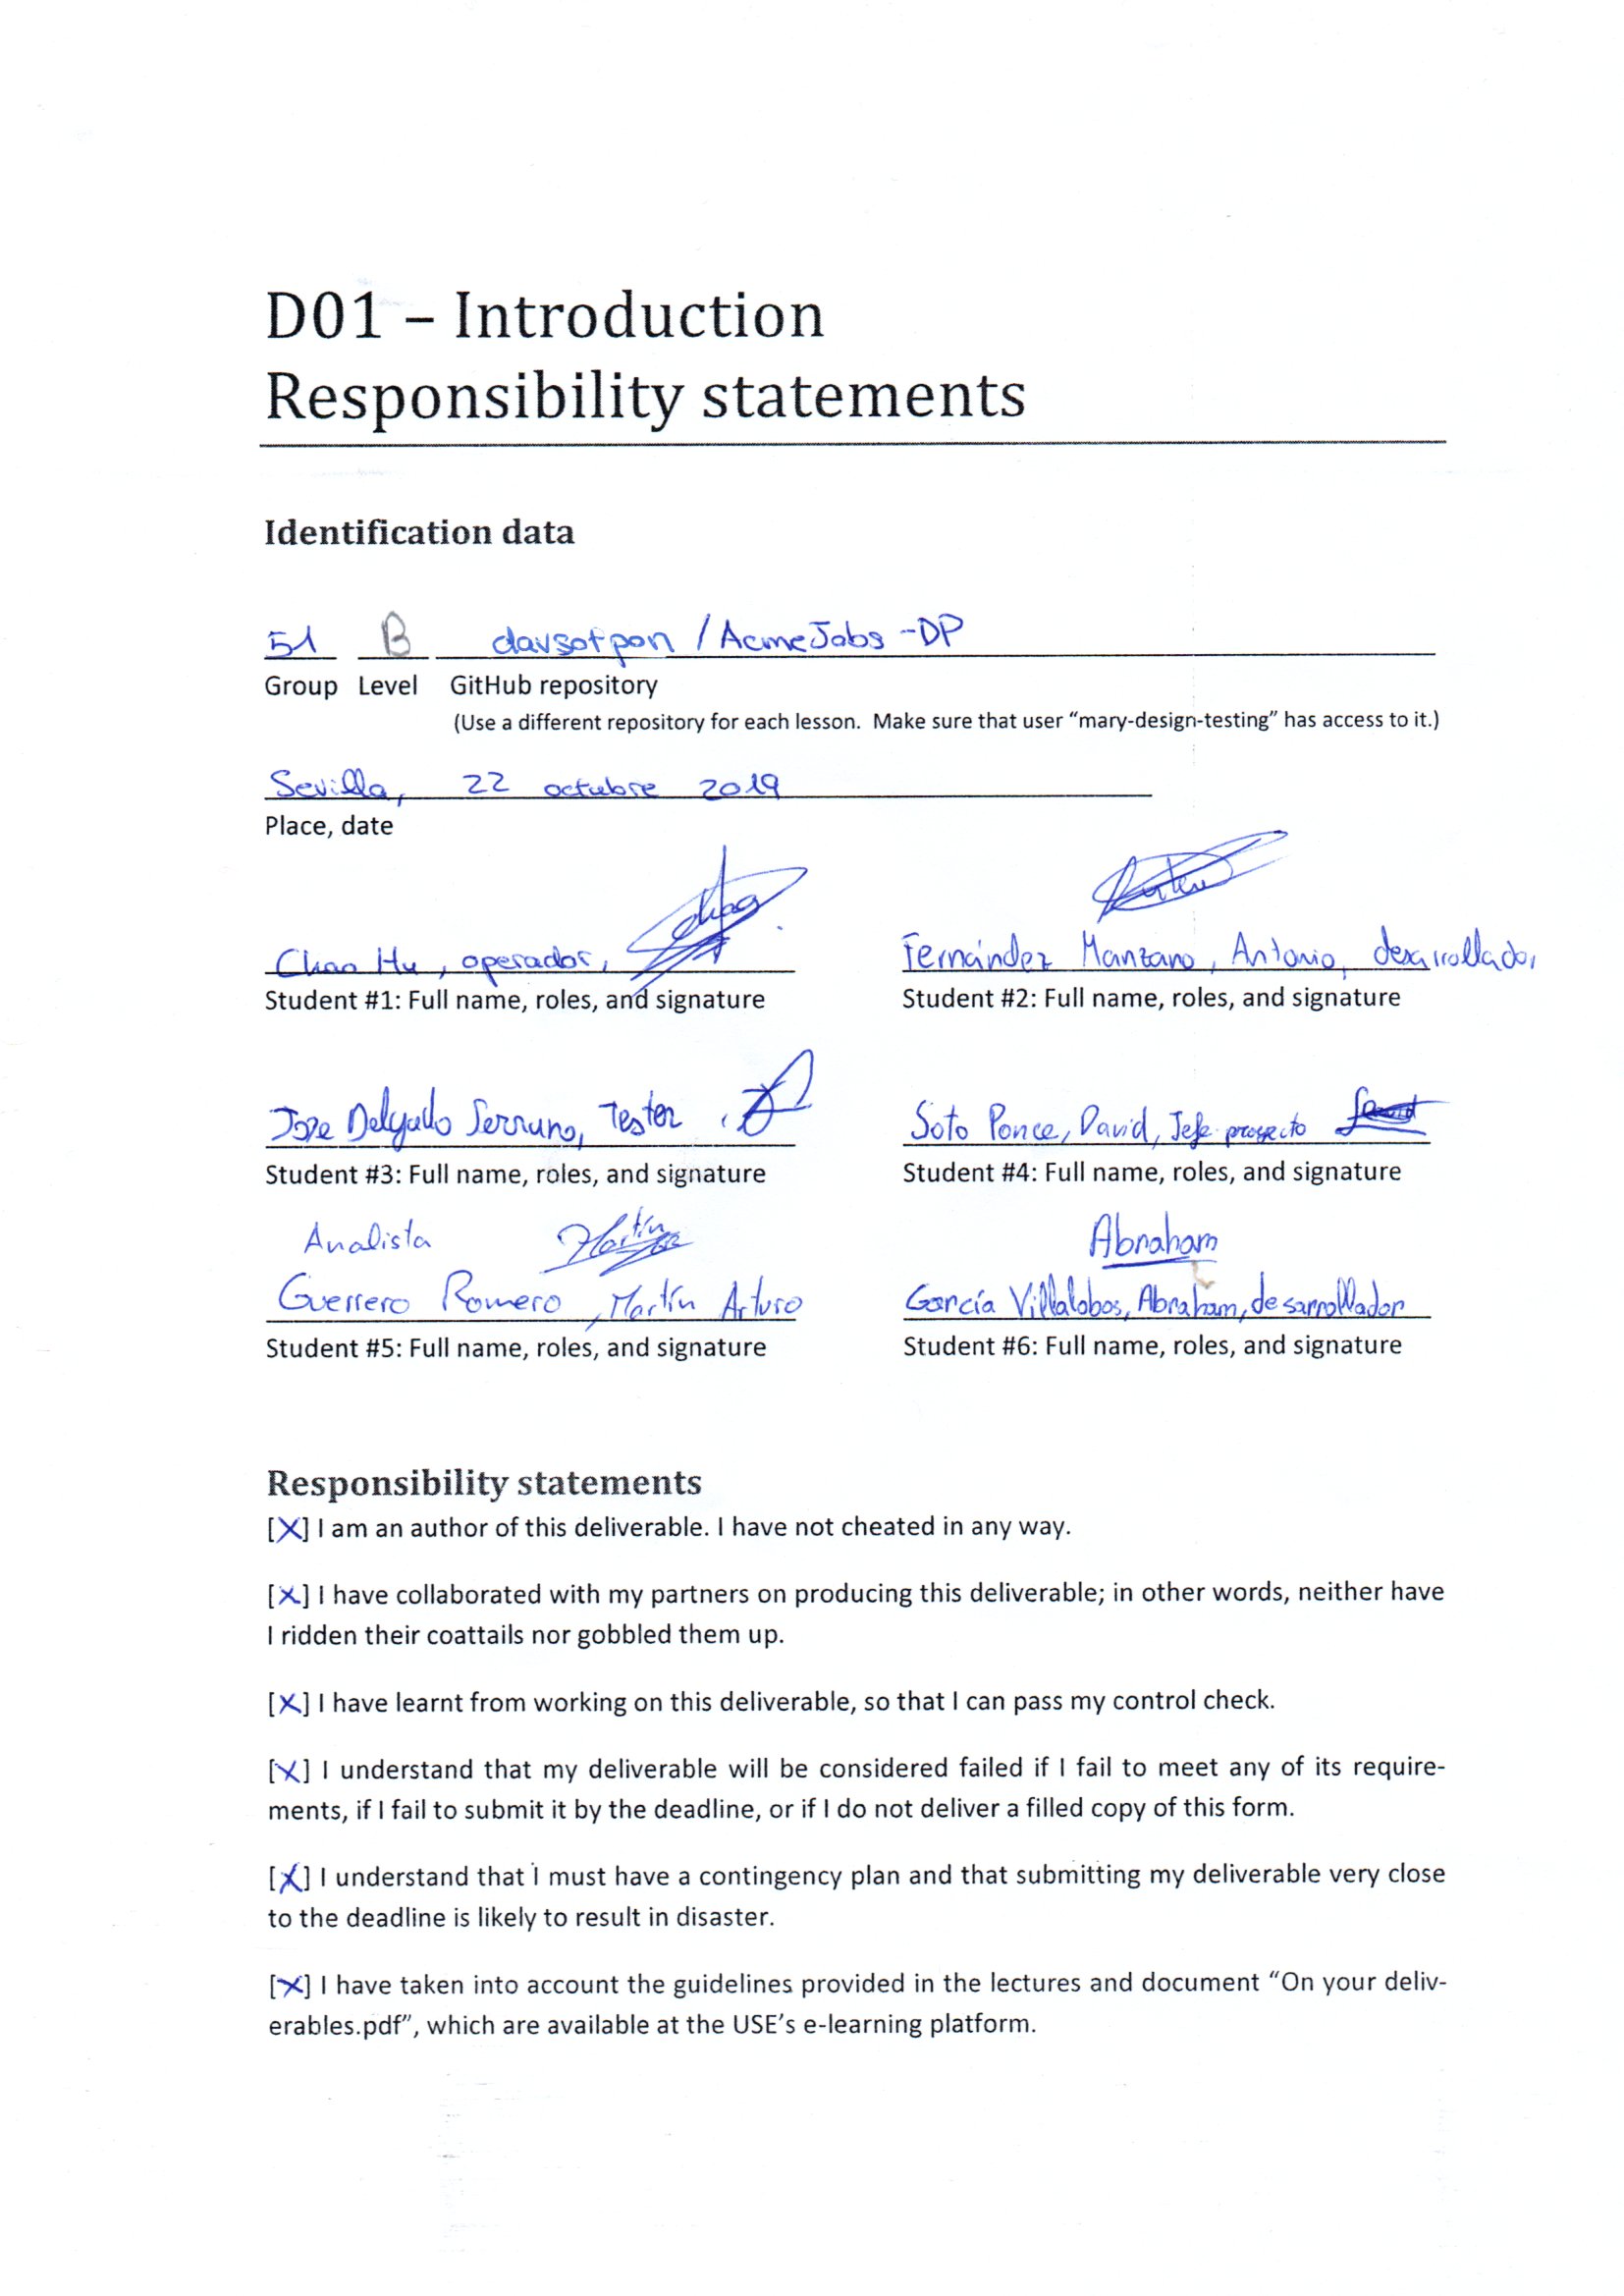 D01 – Introduction
Responsibility statements
Identification data
51 B davsotpon / AcmeJobs - DP
Group Level GitHub repository
(Use a different repository for each lesson. Make sure that user “mary-design-testing” has access to it.)
Sevilla, 22 octubre 2019
Place, date
Chao Hu, operador, Fernández Manzano, Antonio, desarrollador
Student #1: Full name, roles, and signature Student #2: Full name, roles, and signature
Jose Delgado Serrano, Tester, Soto Ponce, David, Jefe proyecto
Student #3: Full name, roles, and signature Student #4: Full name, roles, and signature
Analista Martín Abraham
Guerrero Romero, Martín Arturo García Villalobos, Abraham, desarrollador
Student #5: Full name, roles, and signature Student #6: Full name, roles, and signature
Responsibility statements
[X] I am an author of this deliverable. I have not cheated in any way.
[X] I have collaborated with my partners on producing this deliverable; in other words, neither have
I ridden their coattails nor gobbled them up.
[X] I have learnt from working on this deliverable, so that I can pass my control check.
[X] I understand that my deliverable will be considered failed if I fail to meet any of its require-
ments, if I fail to submit it by the deadline, or if I do not deliver a filled copy of this form.
[X] I understand that I must have a contingency plan and that submitting my deliverable very close
to the deadline is likely to result in disaster.
[X] I have taken into account the guidelines provided in the lectures and document “On your deliv-
erables.pdf”, which are available at the USE’s e-learning platform.